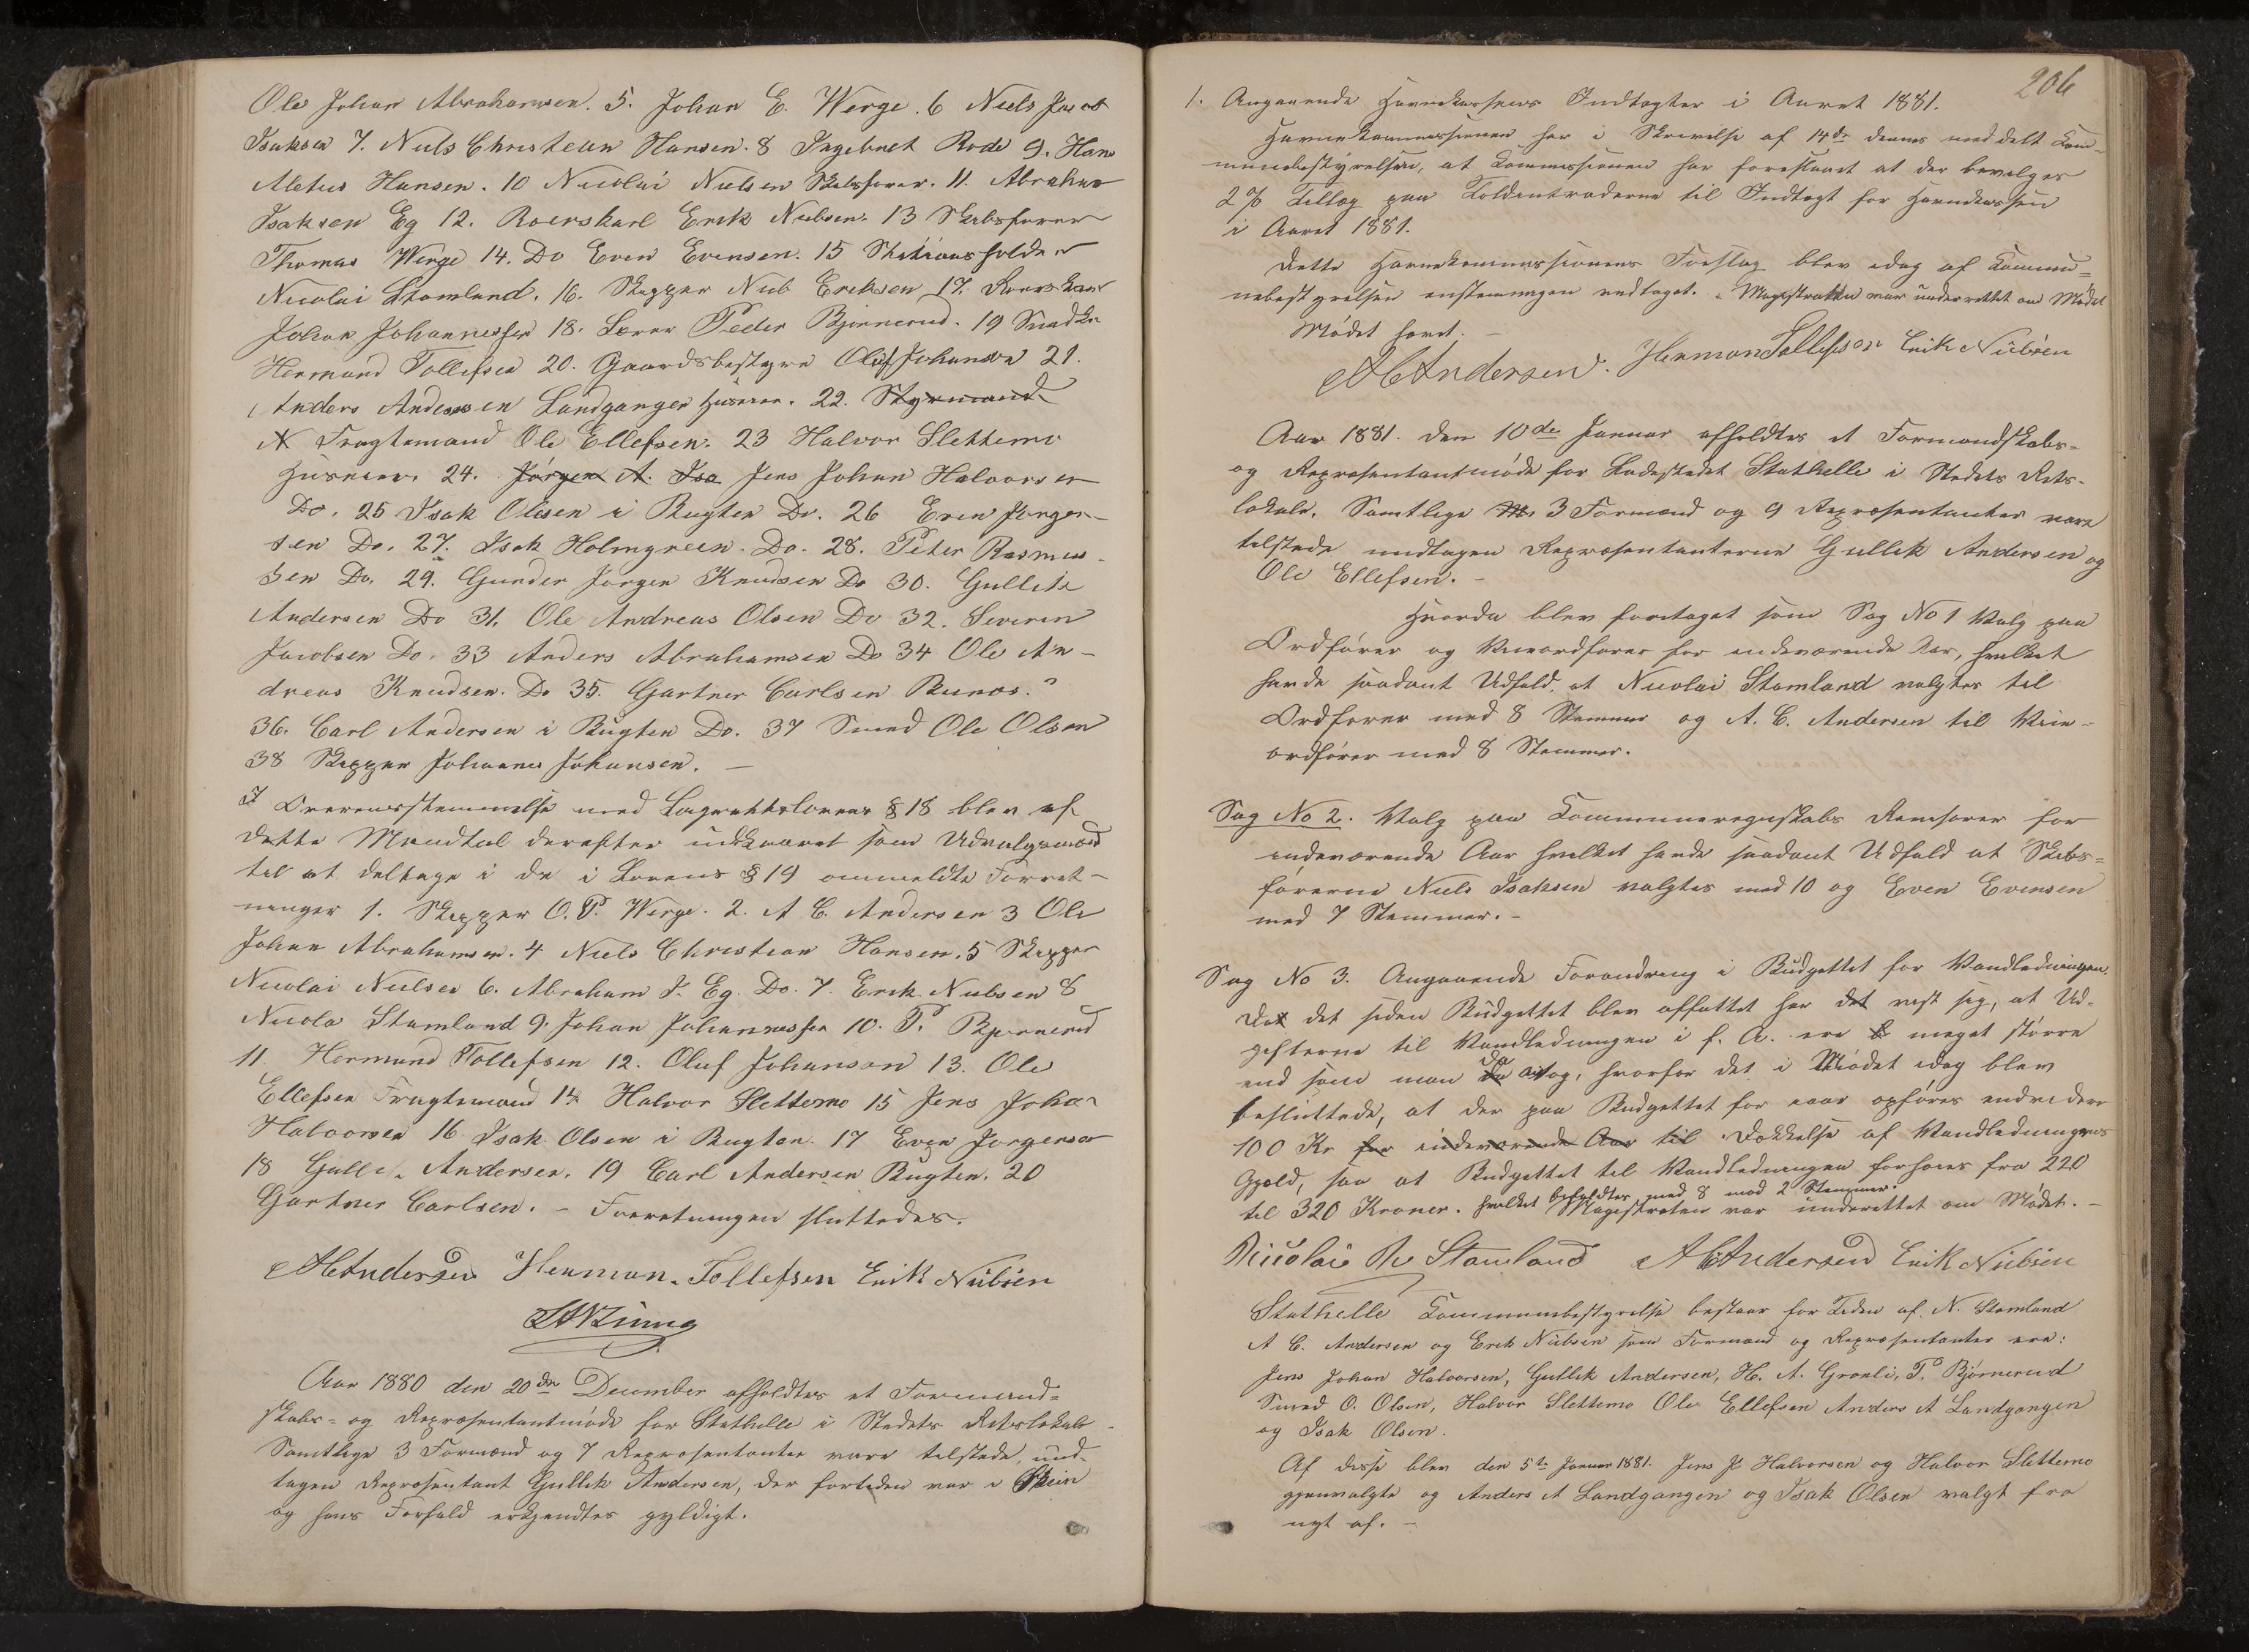 Ole Johan Abrahamsen. 5. Johan E. Werge. 6 Niels Jacob
Isaksen 7. Niels Christean Hansen. 8 Ingebret Rode 9. Hans
Aletus Hansen. 10 Nicolai Nielsen Skibsfører. 11. Abraham
Isaksen Eg 12. Roerskarl Erik Nielsen. 13 Skibsfører
Thomas Werge 14. Do Even Evensen. 15 Stationsholder
Nicolai Stamland. 16. Skipper Niels Eriksen 17. Roerskarl
Johan Johannessen 18. Lærer Peder Bjørnerud. 19 Snedker
Hermand Tollefsen 20. Gaardsbestyrer Oluf Johansen 21.
Anders Andersen Landgangen Huseier. 22. Styrmand
N Fragtemand Ole Ellefsen. 23 Halvor Slettemo
Huseier. 24. Jørgen A. Isa Jens Johan Halvorsen
Do. 25 Isak Olesen i Bugten Do. 26 Even Jørgen-
sen Do. 27. Isak Holmgreen. Do. 28. Peter Rasmus-
sen Do. 29. Gunder Jørgen Knudsen Do 30. Gullik
Andersen Do 31. Ole Andreas Olsen Do 32. Severin
Jacobsen Do. 33 Anders Abrahamsen Do 34 Ole An-
dreas Knudsen. Do 35. Gartner Carlsen
36. Carl Andersen i Bugten Do. 37 Smed Ole Olsen
38 Skipper Johannes Johansen. —
I Overensstemmelse med Lagrettelovens § 18 blev af
dette Mandtal derefter udkaaret som Udvalgsmænd
til at deltage i de i Lovens § 19 ommeldte Forret-
ninger 1. Skipper O. P. Werge. 2. A C. Andersen 3 Ole
Johan Abrahamsen. 4 Niels Christian Hansen. 5 Skipper
Nicolai Nielsen 6. Abraham I. Eg. Do. 7. Erik Nielsen 8
Nicola Stamland 9. Johan Johannessen 10. P. Bjørnerud
11. Hermand Tollefsen 12. Oluf Johanson 13. Ole
Ellefsen Fragtemand 14 Halvor Slettemo 15 Jens Johan
Halvorsen 16. Isak Olsen i Bugten. 17 Even Jørgensen
18 Gullik Andersen. 19 Carl Andersen Bugten. 20
Gartner Carlsen. – Forretningen sluttedes.
ACAndersen Herman. Tollefsen Erik Nielsen
Aar 1880 den 20de December afholdtes et Formand=
skabs= og Repræsentantmøde for Stathelle i Stedets Retslokale
Samtlige 3 Formænd og 7 Repræsentanter vare tilstede, und-
tagen Repræsentant Gullik Andersen, der fortiden var i Skien
og hans Forfald erkjendtes gyldigt.
206
1. Angaaende Havnekassens Indtægter i Aaret 1881.
Havnekommissionen har i Skrivelse af 14de dennes meddelt Kom-
munebestyrelsen, at Kommissionen har foreslaaet at der bevilges
2 % Tillæg paa Toldintraderne til Indtægt for Havnekassen
i Aaret 1881.
Dette Havnekommissionens Forslag blev idag af Kommu=
nebestyrelsen enstemmigen vedtaget. – Magistraten var underrettet om Mødet
Mødet hævet. –
ACAndersen. Herman Tollefsen Erik Nielsen
Aar 1881. den 10de Januar afholdtes et Formandskabs-
og Repræsentantmøde for Ladestedet Stathelle i Stedets Rets-
lokale. Samtlige M. 3 Formænd og 9 Repræsentanter vare
tilstede undtagen Repræsentanterne Gullik Andersen og
Ole Ellefsen. –
Hvorda blev foretaget som Sag No 1 Valg paa
Ordfører og Viceordfører for indeværende Aar, hvilket
havde saadant Udfald, at Nicolai Stamland valgtes til
Ordfører med 8 Stemmer og A. C. Andersen til Vice-
ordfører med 8 Stemmer.
Sag No 2. Valg paa Kommuneregnskabs Revisorer for
indeværende Aar hvilket havde saadant Udfald at Skibs=
førerne Niels Isaksen valgtes med 10 og Even Evensen
med 7 Stemmer. –
Sag No 3. Angaaende Forandring i Budgettet for Vandledningen.
Det det siden Budgettet blev affattet har det vist sig, at Ud-
gifterne til Vandledningen i f. A. ere meget større
end som man da antog, hvorfor det i Mødet idag blev
besluttede, at der paa Budgettet for iaar opføres endvidere
100 Kr for indeværende Aar til Dækkelse af Vandledningens
Gjæld, saa at Budgettet til Vandledningen forhøies fra 220
til 320 Kroner. hvilket besluttes med 8 mod 2 Stemmer. Magistraten var underrettet om Mødet. –
Nicolai N. Stamland ACAndersen Erik Nielsen
Stathelle Kommunebestyrelse bestaar for Tiden af N. Stamland
A C. Andersen og Erik Nielsen som Formænd og Repræsentanter ere:
Jens Johan Halvorsen, Gullik Andersen, H. A. Grønli, P. Bjørnerud
Smed O. Olsen, Halvor Slettemo Ole Ellefsen Anders A Landgangen
og Isak Olsen.
Af disse blev den 5te Januar 1881. Jens J. Halvorsen og Halvor Slettemo
gjenvalgte og Anders A Landgangen og Isak Olsen valgt fra
nyt af. –